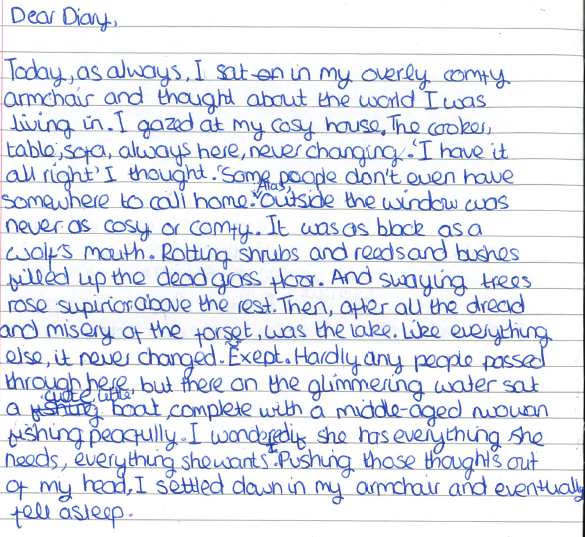 Dear Diary,
Today, as always, I sat on in my overly comfy
armchair and thought about the world I was
living in. I gazed at my cosy house. The cooker,
table, sofa, always here, never changing. 'I have it
all right' I thought. 'Some people don't even have
somewhere to call home.' Alas, outside the window was
never as cosy or comfy. It was as black as a
wolf's mouth. Rotting shrubs and reeds and bushes
filled up the dead grass floor. And swaying trees
rose supirior above the rest. Then, after all the dread
and misery of the forset, was the lake. Like everything
else, it never changed. Exept. Hardly any people passed
through here, but there on the glimmering water sat
a quite little boat, complete with a middle-aged woman
fishing peacfully. I wondered if she has everything she
needs, everything she wants. Pushing those thoughts out
of my head, I settled down in my armchair and eventually
fell asleep.